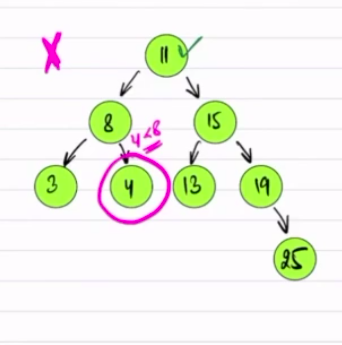 X 11 ✓
8 15
4<8
3 4 13 19
25